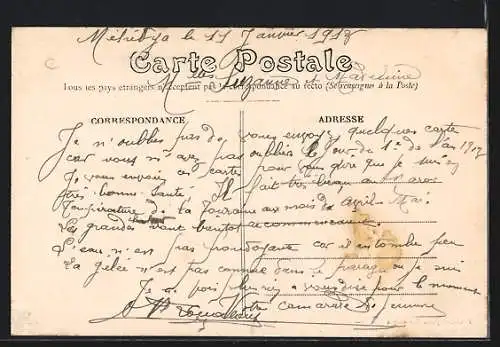 C
Méhédya le 15 Janvier 1913
Carte Postale
Melles Suzanne et Madeleine
Tous les pays étrangers n'acceptent pas la correspondance au recto (Se renseigner à la Poste)
CORRESPONDANCE
ADRESSE
Je n'oublies pas de vous envoyer quelques carte
car vous n'avez pas oublier le jour du 1er de l'an
Je vous envoie ces carte pour vous dire que je suis en
très bonne santé. Il fait très beau au Maroc
Température de la Touraine aux mois de Avril Mai.
Les grandes vont bientot recommencent.
L'eau n'est pas car il en tombe peu
La gelée n'est pas connue dans le parage ou je suis
Je ne pois plus rien a vous dire pour le moment
Votre camarade